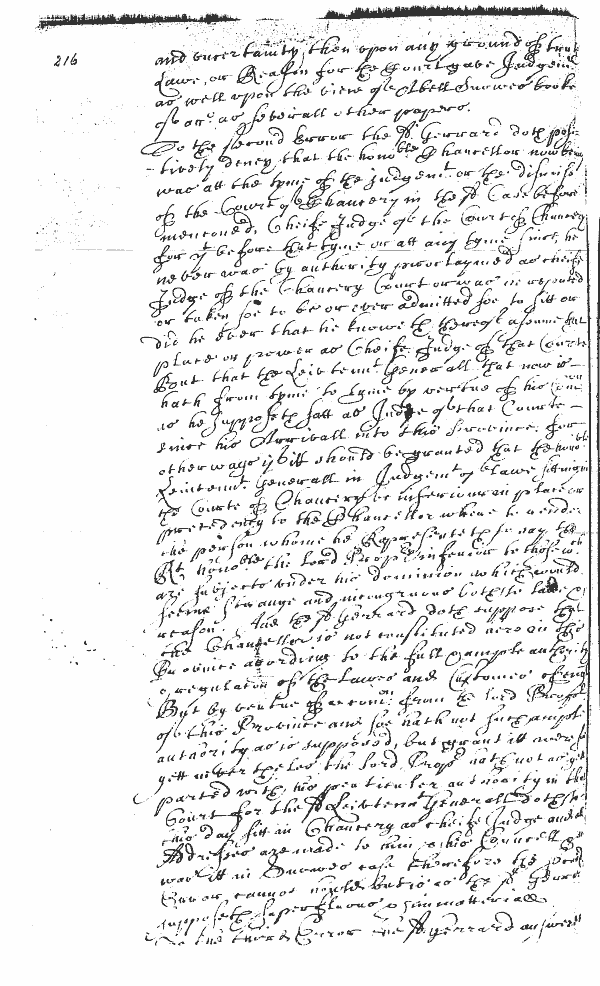 216
and uncertainty then upon any ground of true
Lawe, or Reason for the Court gave Judgemt
as well upon the view of Abell Snowes booke
of acc. as severall other papers.
To the second Error the sd Gerrard doth posi
tively deney that the honoble Chancellor now being
was att the tyme of the Judgemt or the dismiss
of the Court of Chancery in the sd Case before
mentioned, Cheife Judge of the Court of Chancery
for yt before that tyme or att any tyme since he
never was by authority proclaymed as cheife
Judge of the Chancery Court or was in reputed
or taken soe to be or ever admitted soe to sitt or
did he ever that he knoweth thereof assume that
place or power as Cheife Judge of that Courte
But that the Leivtennt Generall that now is
hath from tyme to tyme by vertue of his Com
as he supposeth satt as Judge of that Courte
since his Arrivall into this Province. For
otherwayes if itt should be granted that the honoble
Leivtennt Generall in Judgemt of Lawe sitting in
the Courte of Chancery be inferiour in place or
precedency to the Chancellor where to render
the person whome he Representeth to say the
Rt honoble the Lord Propr inferior to those wch
are subjects under his dominion which would
seeme strange and incongruous both to Law &
reason. And the sd Gerrard doth suppose that
the Chancellor is not constituted here in this
Province according to the full & ample authority
& regulaton of the Lawes and Customes of Eng
But by vertue of a com from the lord Propr
of this Province and soe hath not such ample
authority as is supposed, but grant itt were so
yett never theles the lord Propr hath not as yet
parted with his peculiar authority in that
Court for the sd Leivtennt Generall doth to
this day sitt in Chancery as cheife Judge and all
Addresses are made to him & his Councell as
was itt in Snowes case therefore the second
Error cannot but is as the sd Gerrard
supposeth superfluous & immateriall
To the third Error the sd Gerrard answereth